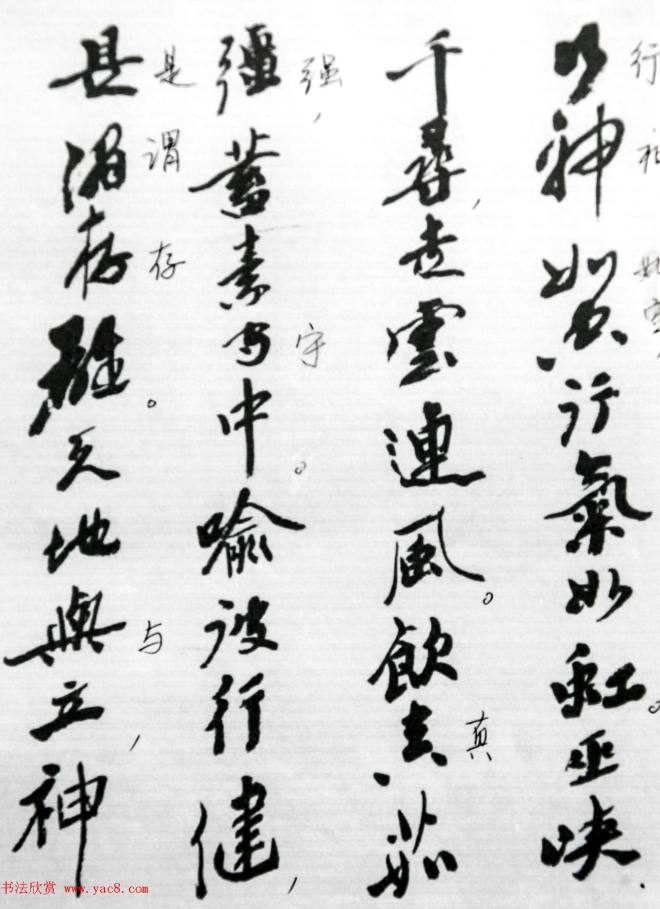 行神如空行氣如虹。巫峡
行神如空，
千尋，走雲連風。飲真茹
真
彊蓄素守中。喻彼行健，
强，守
是謂存雄。天地與立，神
是謂存与
书法欣赏 www.yac8.com